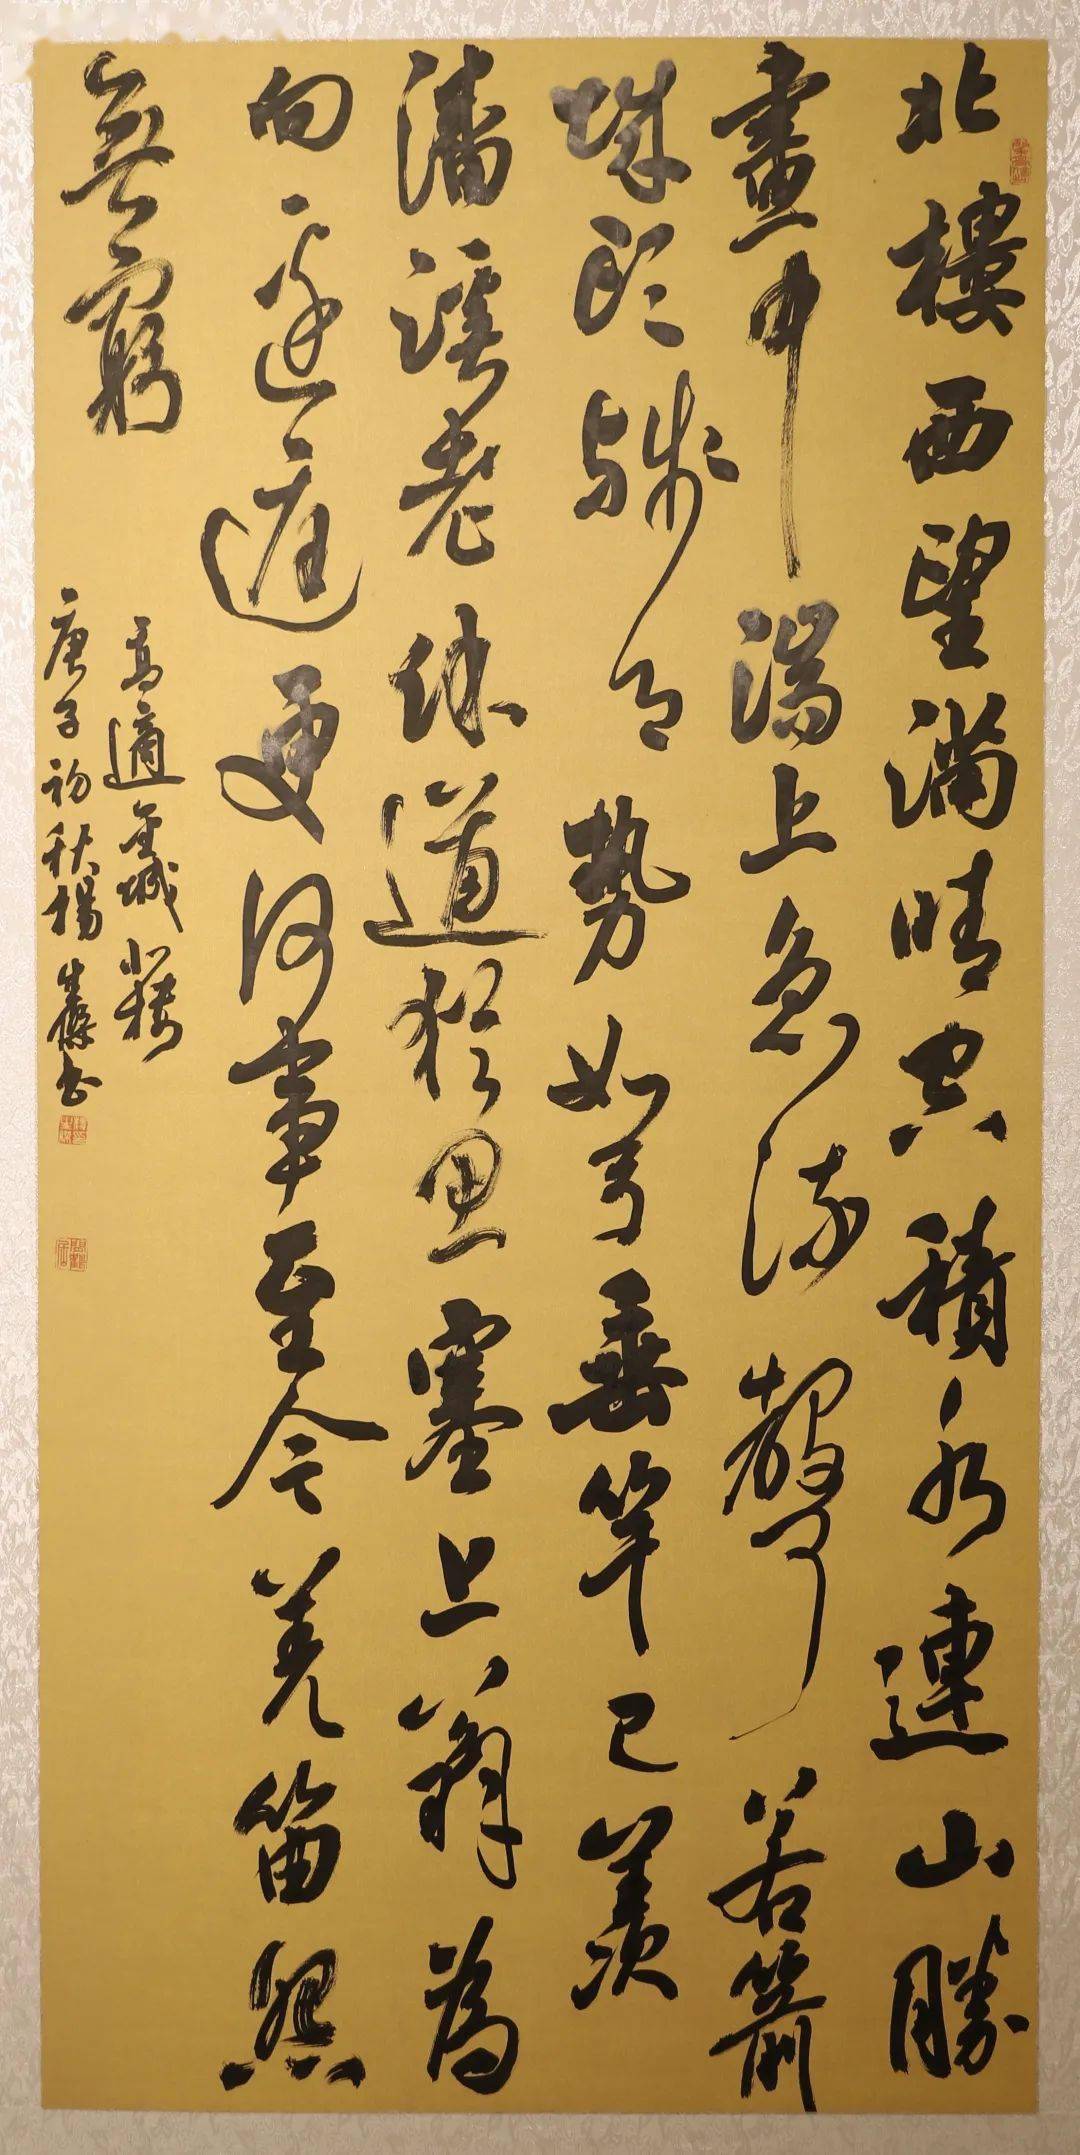 北樓西望滿晴空積水連山勝
畫中湍上急流聲若箭
城頭殘月勢如弓垂竿已羨
潘溪老体道猶思塞上翁為
向邊庭更何事至今羌笛怨
無窮
高適金城北樓
庚子初秋楊書